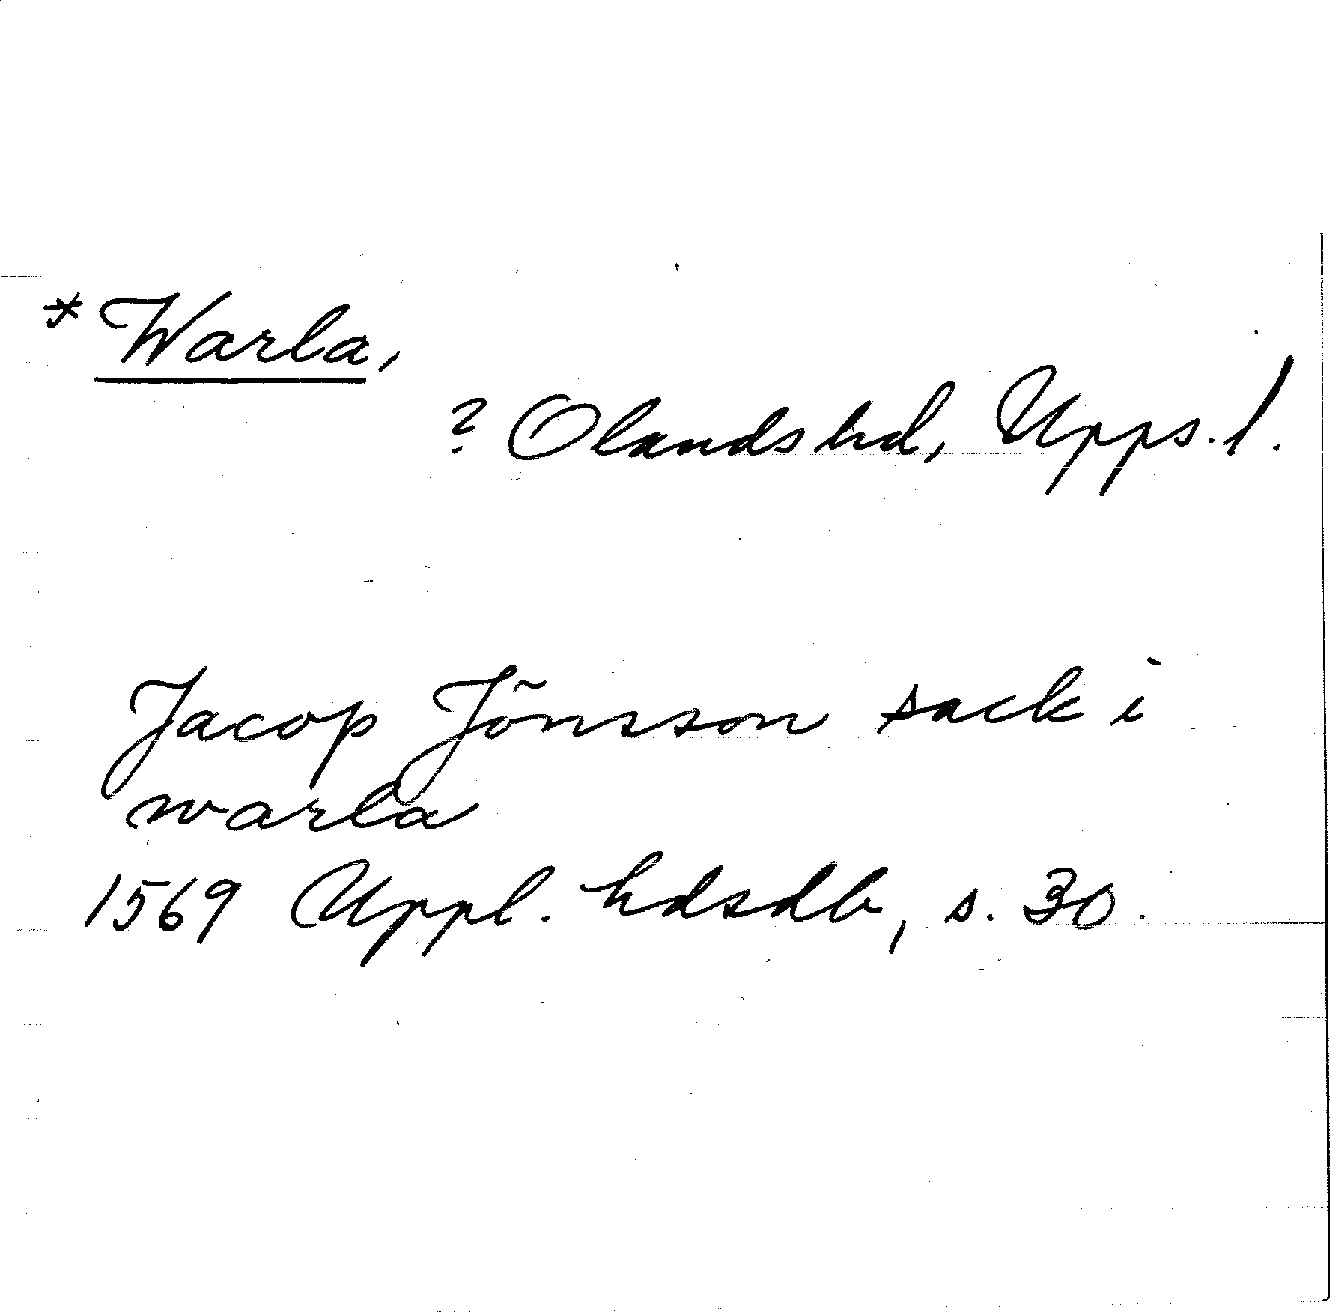 * Warla,
? Olands hd, Upps. l.
Jacop Jönsson sack i
warla
1569 Uppl. hdsdb, s. 30.